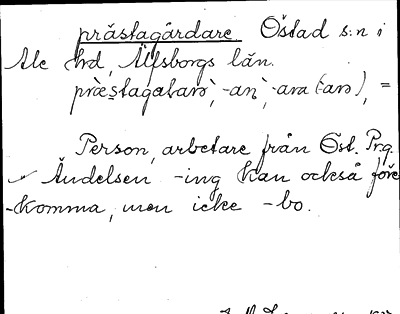 prästagårdare Östad s:n i
Ale hd, Älfsborgs län.
præstagaʈarə, -aɲ, -ara (-arə), =
Person, arbetare från Öst. Prg.
Ändelsen -ing kan också före
-komma, men icke -bo.